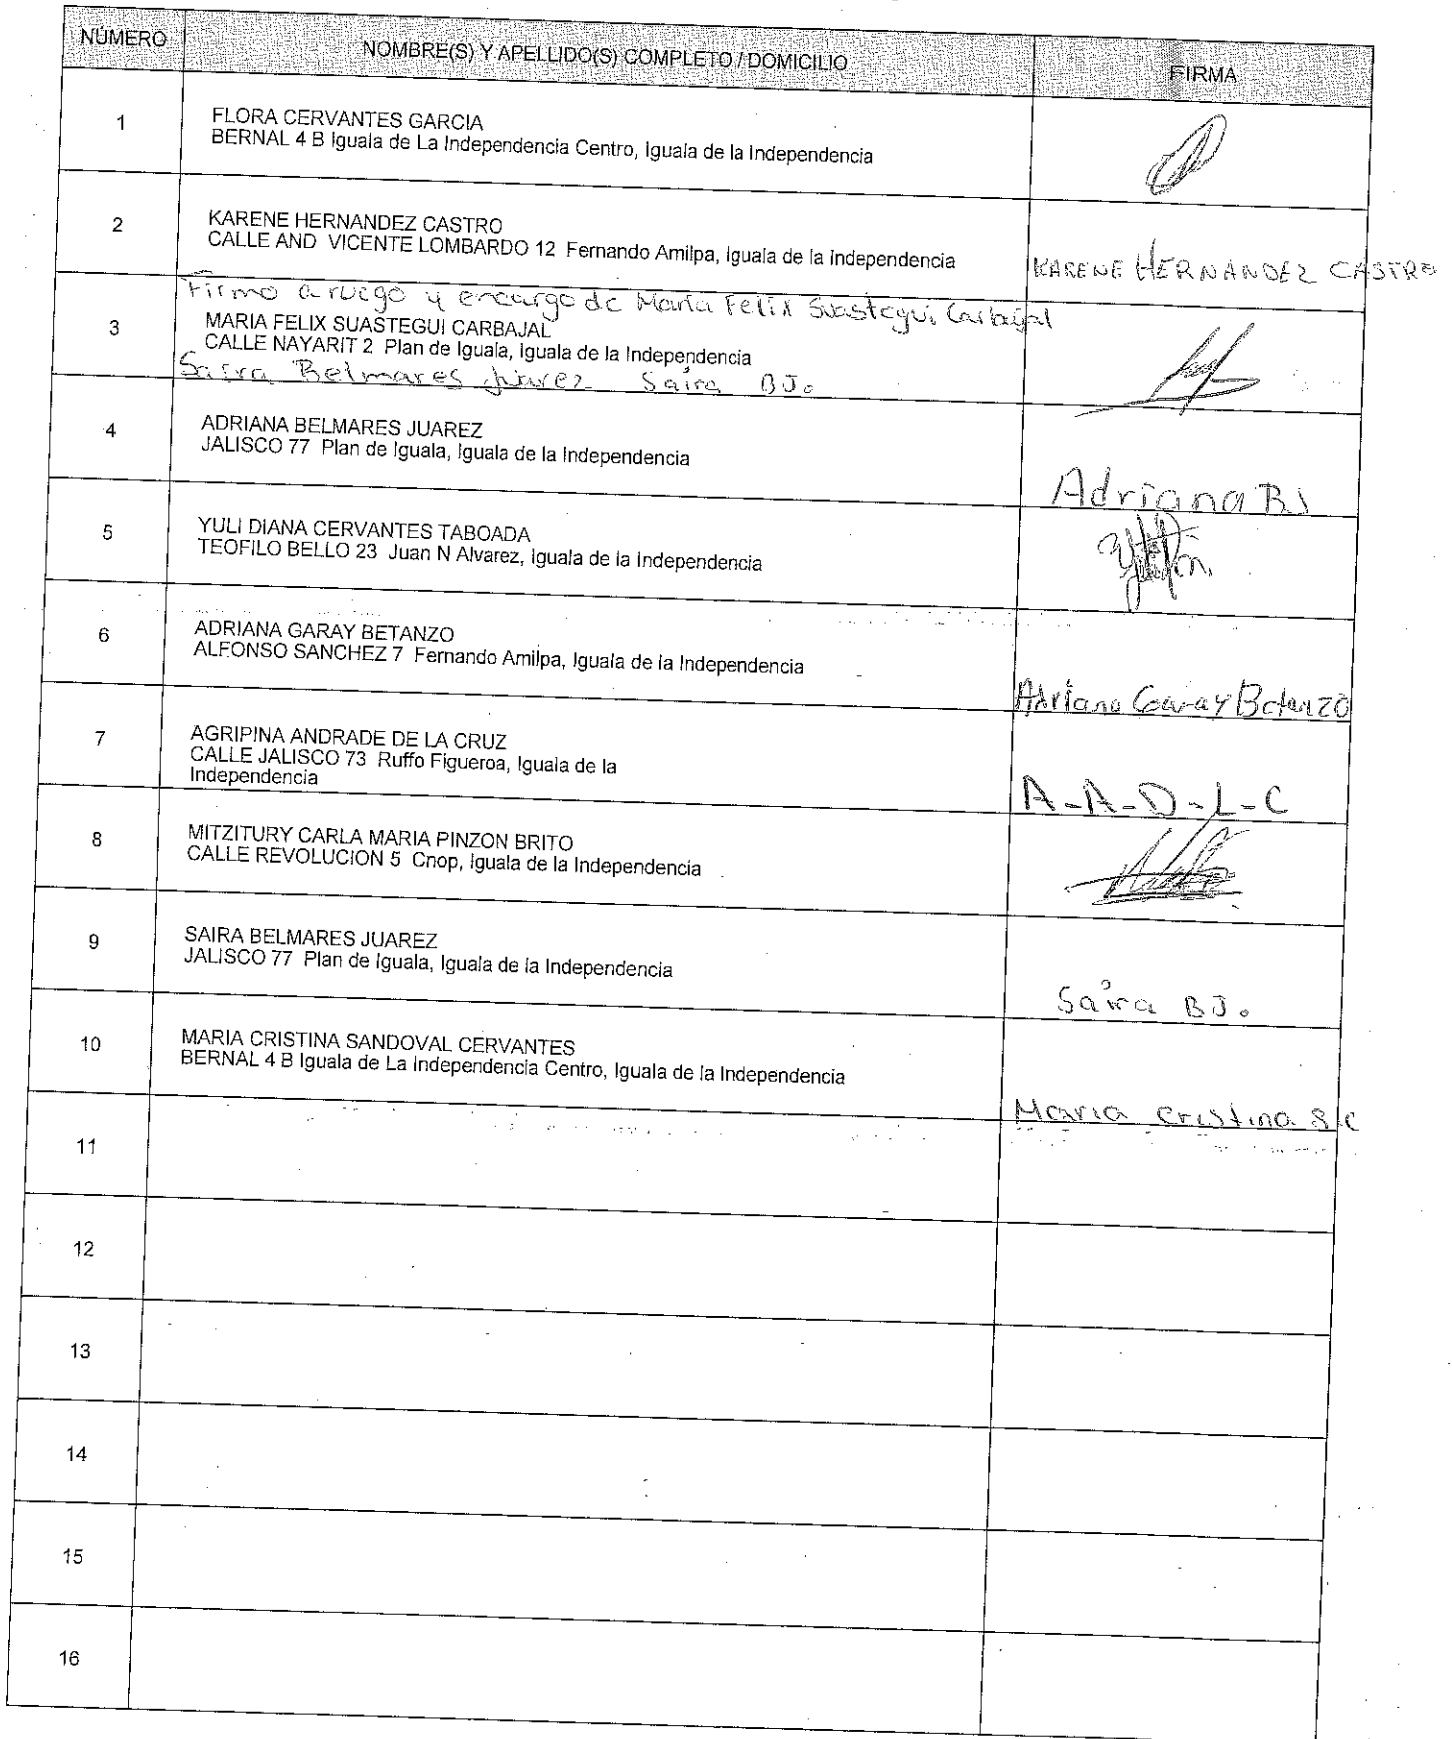 NÚMERO NOMBRE(S) Y APELLIDO(S) COMPLETO / DOMICILIO FIRMA
1 FLORA CERVANTES GARCIA
BERNAL 4 B Iguala de La Independencia Centro, Iguala de la Independencia
2 KARENE HERNANDEZ CASTRO
CALLE AND VICENTE LOMBARDO 12 Fernando Amilpa, Iguala de la Independencia
KARENE HERNANDEZ CASTRO
Firmo a ruego y encargo de Maria Felix Suastegui Carbajal
3 MARIA FELIX SUASTEGUI CARBAJAL
CALLE NAYARIT 2 Plan de Iguala, Iguala de la Independencia
Saira Belmares Juarez Saira BJ.
4 ADRIANA BELMARES JUAREZ
JALISCO 77 Plan de Iguala, Iguala de la Independencia
Adriana BJ
5 YULI DIANA CERVANTES TABOADA
TEOFILO BELLO 23 Juan N Alvarez, Iguala de la Independencia
6 ADRIANA GARAY BETANZO
ALFONSO SANCHEZ 7 Fernando Amilpa, Iguala de la Independencia
Adriana Garay Betanzo
7 AGRIPINA ANDRADE DE LA CRUZ
CALLE JALISCO 73 Ruffo Figueroa, Iguala de la
Independencia
A-A-D-L-C
8 MITZITURY CARLA MARIA PINZON BRITO
CALLE REVOLUCION 5 Cnop, Iguala de la Independencia
9 SAIRA BELMARES JUAREZ
JALISCO 77 Plan de Iguala, Iguala de la Independencia
Saira BJ.
10 MARIA CRISTINA SANDOVAL CERVANTES
BERNAL 4 B Iguala de La Independencia Centro, Iguala de la Independencia
Maria Cristina S.C
11
12
13
14
15
16